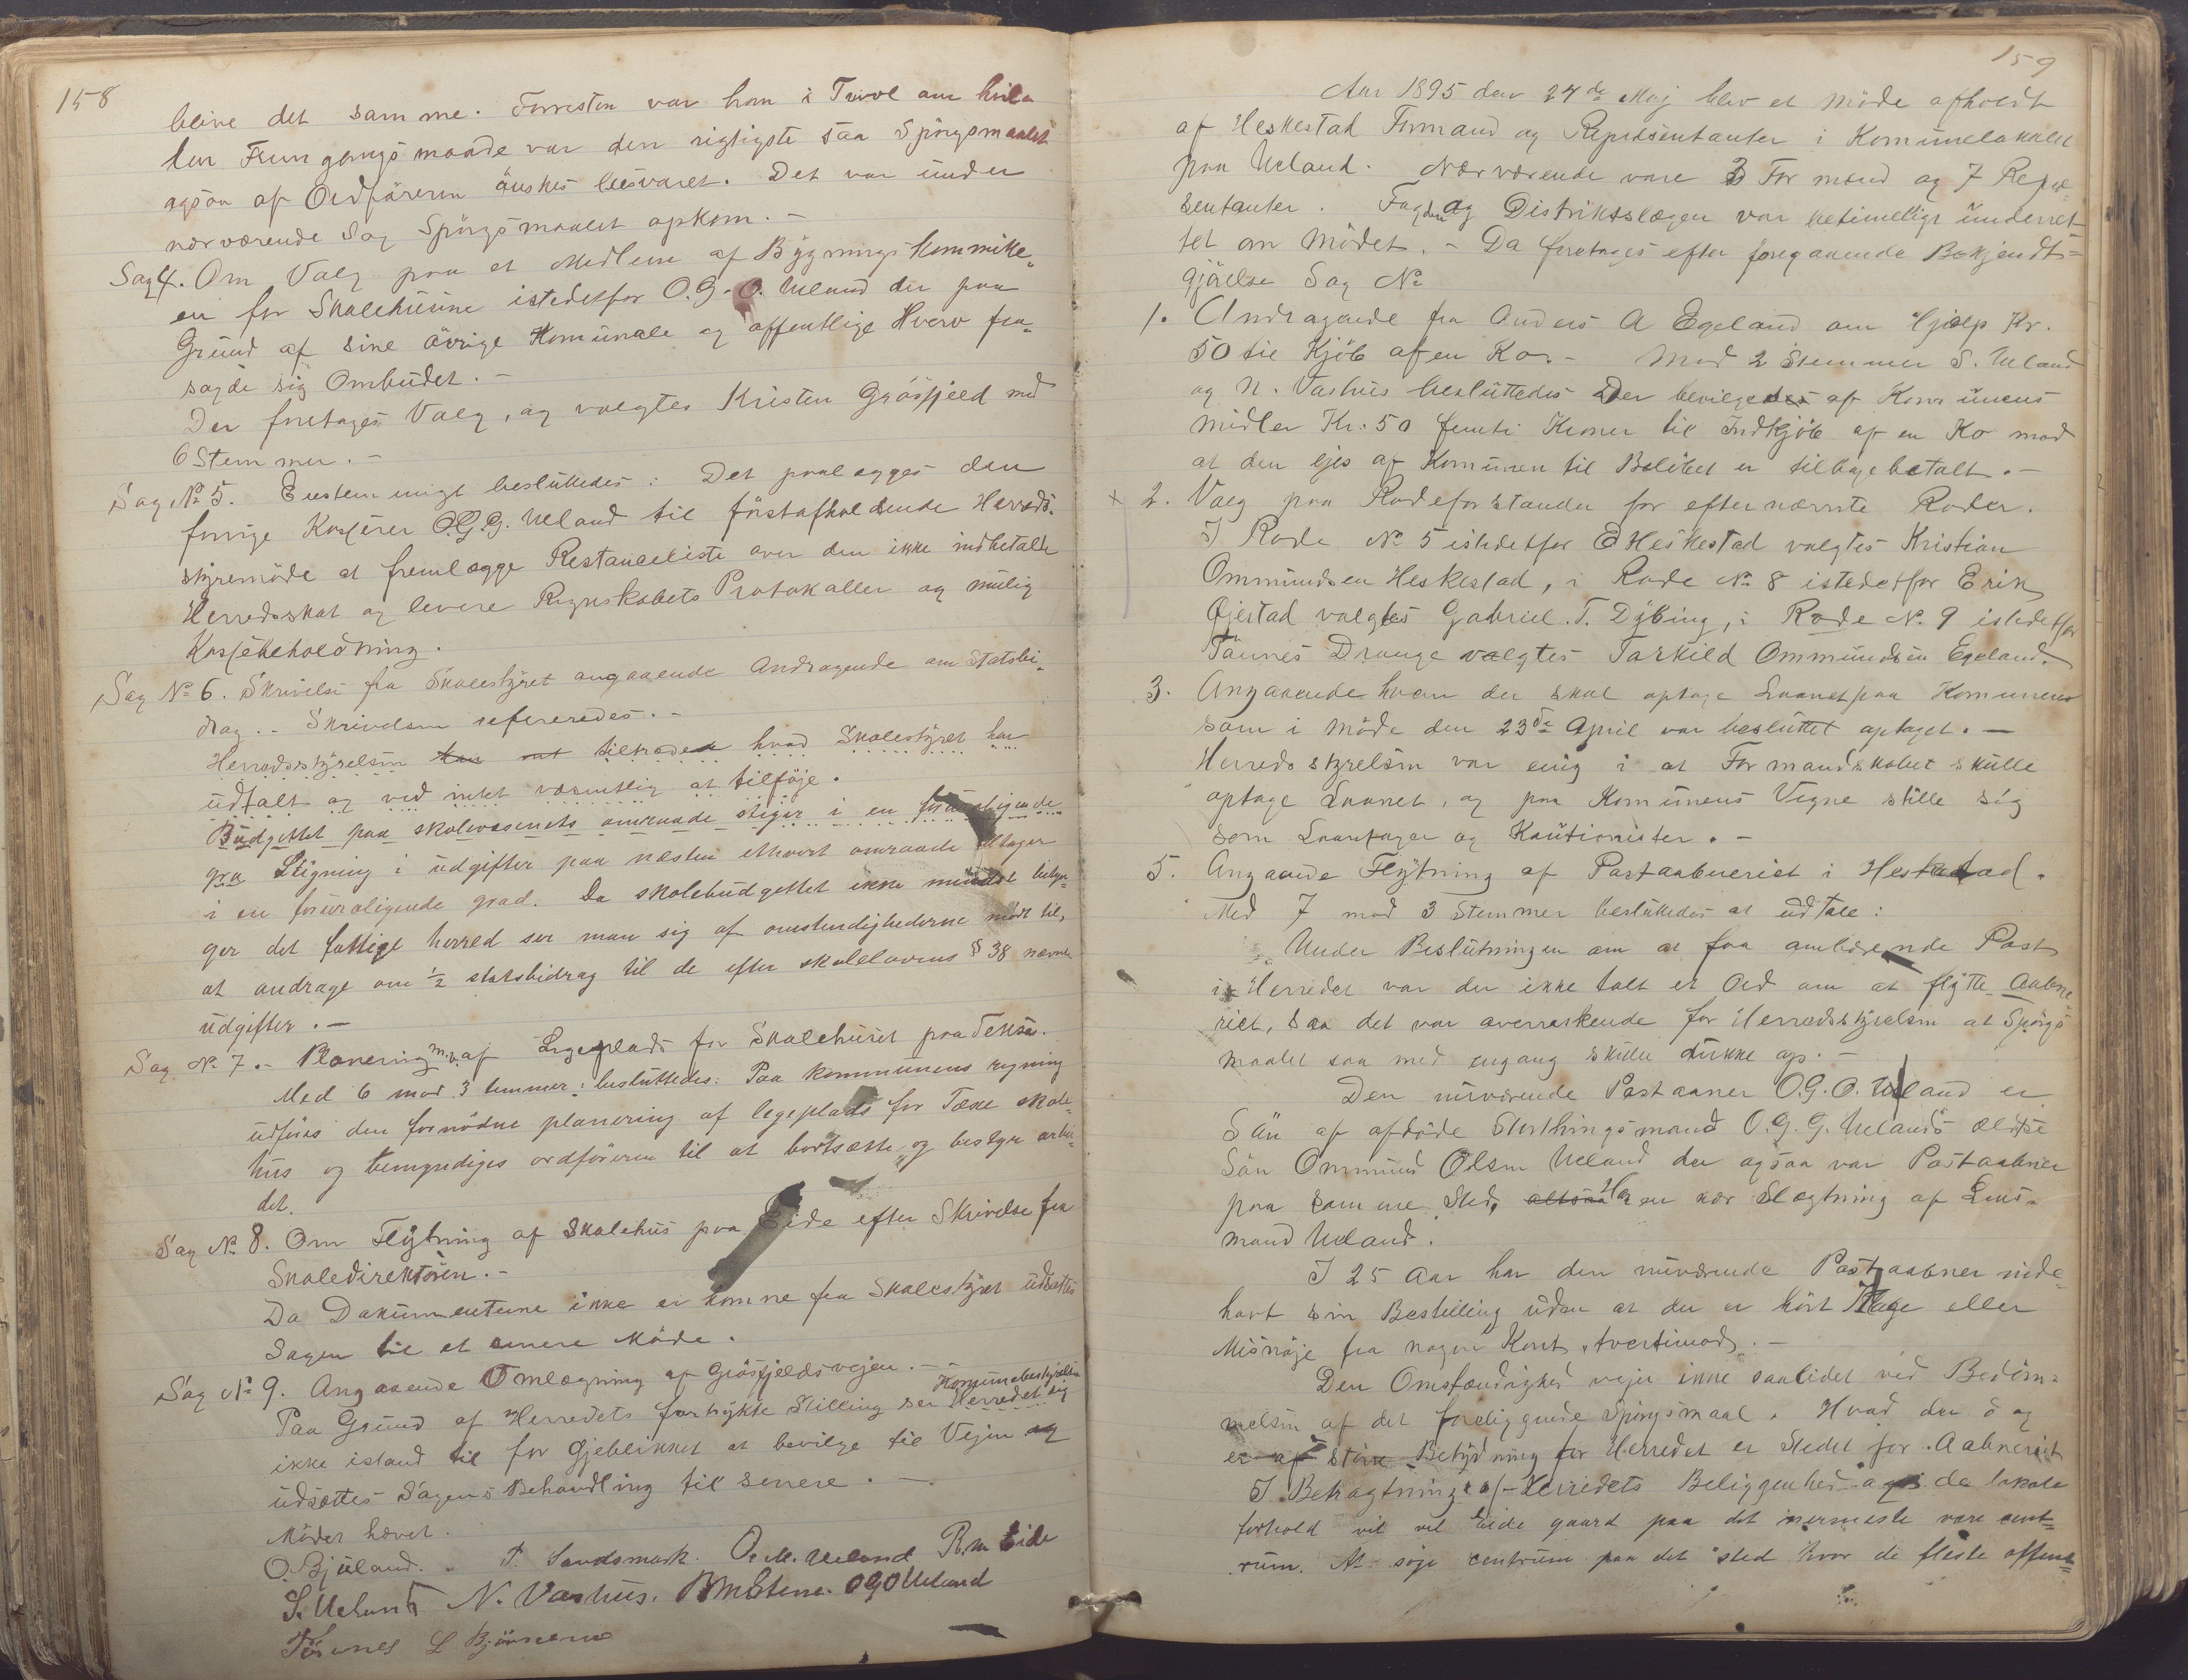 158
blive det samme. Forresten var han i Tvivl om hvil-
ken Fremgangsmaade var den rigtigste saa Spörgsmaalet
ogsaa af Ordföreren önskes besvaret. Det var under
nærværende Sag Spörgsmaalet opkom. -
Sag 4. Om Valg paa et Medlem af Bygningskommite-
en for Skolehusene istedetfor O. G. O. Ueland der paa
Grund af sine övrige Komunale og offentlige Hverv fra-
sagde sig Ombudet. -
Der foretages Valg, og valgtes Kristen Grösfjeld med
6 Stemmer. -
Sag No 5. Enstemmigt besluttedes: Det paalægges den
forrige Kasserer O. G. G. Ueland til förstafholdende Herreds-
styremöde at fremlægge Restanceliste over den ikke indbetalte
Herredsskat og levere Regnskabets Protokoller og mulig
Kassebeholdning.
Sag No 6. Skrivelse fra Skolestyret angaaende Andragende om Statsbi-
drag. - Skrivelsen refereredes. -
Herredsstyrelsen tiltræder hvad Skolestyret har
udtalt og ved intet væsentlig at tilföje.
Budgettet paa skolevæsenets omraade stiger i en foruroligende
gra Stigning i udgifter paa næsten ethvert omraade tiltager
i en foruroligende grad. Da skolebudgettet ikke mindst betyn-
ger det fattige herred ser man sig af omstendighederne nödt til,
at andrage om ½ statsbidrag til de efter skolelovens § 38 nævnte
udgifter. -
Sag No 7. - Planering m.v. af Legeplads for Skolehuset paa Teksen.
Med 6 mod 3 temmer: besluttedes: Paa kommunens regning
udföres den fornödne planering af legeplads for Texe skole-
hus og bemyndiges ordföreren til at bortsætte og bestyre arbei-
det.
Sag No 8. Om Flytning af Skolehus paa Eide efter Skrivelse fra
Skoledirektören. -
Da Dokumenterne ikke er komne fra Skolestyret udsættes
Sagen til et senere Möde.
Sag No 9. Angaaende Omlægning af Grösfjeldsvejen. -
Komunebestyrelsen
Paa Grund af Herredets fortrykte Stilling ser Herredet sig
ikke istand til for Øjeblikket at bevilge til Vejen og
udsættes Sagens Behandling til senere. -
Mödet hævet.
O. Bjuland. T. Sandsmark. O. M. Ueland R. M. Eide
S. Ueland N. Vashus. OGO Ueland
Tönnes L Björnemo
159
Aar 1895 den 27de Maj blev et Möde afholdt
af Heskestad Formænd og Repræsentanter i Komunelokalet
paa Ueland. Nærværende vare 3 Formænd og 7 Repræ-
sentanter. Fogden og Distriktslægen var betimelligt underret-
tet om Mödet. - Da foretages efter foregaaende Bekjendt-
gjörelse Sag No
1. Andragende fra Anders A Egeland om Hjælp Kr.
50 til Kjöb af en Ko. - Mod 2 Stemmer S. Ueland
og N. Vashus besluttedes Der bevilgedes af Komunens
Midler Kr. 50 femti Kroner til Indkjöb af en Ko mod
at den ejes af Komunen til Belöbet er tilbagebetalt. -
x 2. Valg paa Rodeforstander for efternævnte Roder.
I Rode No 5 istedetfor E Heskestad valgtes Kristian
Ommundsen Heskestad, i Rode No 8 istedetfor Erik
Øjestad valgtes Gabriel T. Dybing, i Rode No 9 istedetfor
Tönnes Drange valgtes Torkild Ommundsen Egeland.
3. Angaaende hvem der skal optage Laanet paa Komunens
som i Möde den 23de April var besluttet optaget. -
Herredsstyrelsen var enig i at Formandskabet skulle
optage Laanet, og paa Komunens Vegne stille sig
som Laantager og Kautionister. -
5. Angaaende Flytning af Postaabneriet i Heskestad.
Med 7 mod 3 Stemmer besluttedes at udtale:
Under Beslutningen om at faa ombærende Post
i Herredet var der ikke talt et Ord om at flytte Aabne
riet, saa det var overraskende for Herredsstyrelsen at Spörgs
maalet saa med engang skulde dukke op. -
Den nuværende Postaabner O. G. O. Ueland er
Sön af afdöde Storthingsmand O. G. G. Uelands ældste
Sön Ommund Olsen Ueland der ogsaa var Postaabner
paa samme Sted, altsaa Han en nær Slægtning af Lens-
mand Ueland.
I 25 Aar har den nuværende Postaabner inde-
havt sin Bestilling uden at der er hört Klage eller
Misnöje fra nogen Kant, tvertimod. -
Den Omstændighed vejer ikke saalidet ved Bedöm-
melsen af det foreliggende Spörgsmaal. Hvad der o og
er af större Betydning for Herredet er Stedet for Aabneriet
I Betragtning af Herredets Beliggenhed og de lokale
forhold vil vel Eide gaard paa det nermeste være cent-
rum. At söge centrum paa det sted hvor de fleste offent-